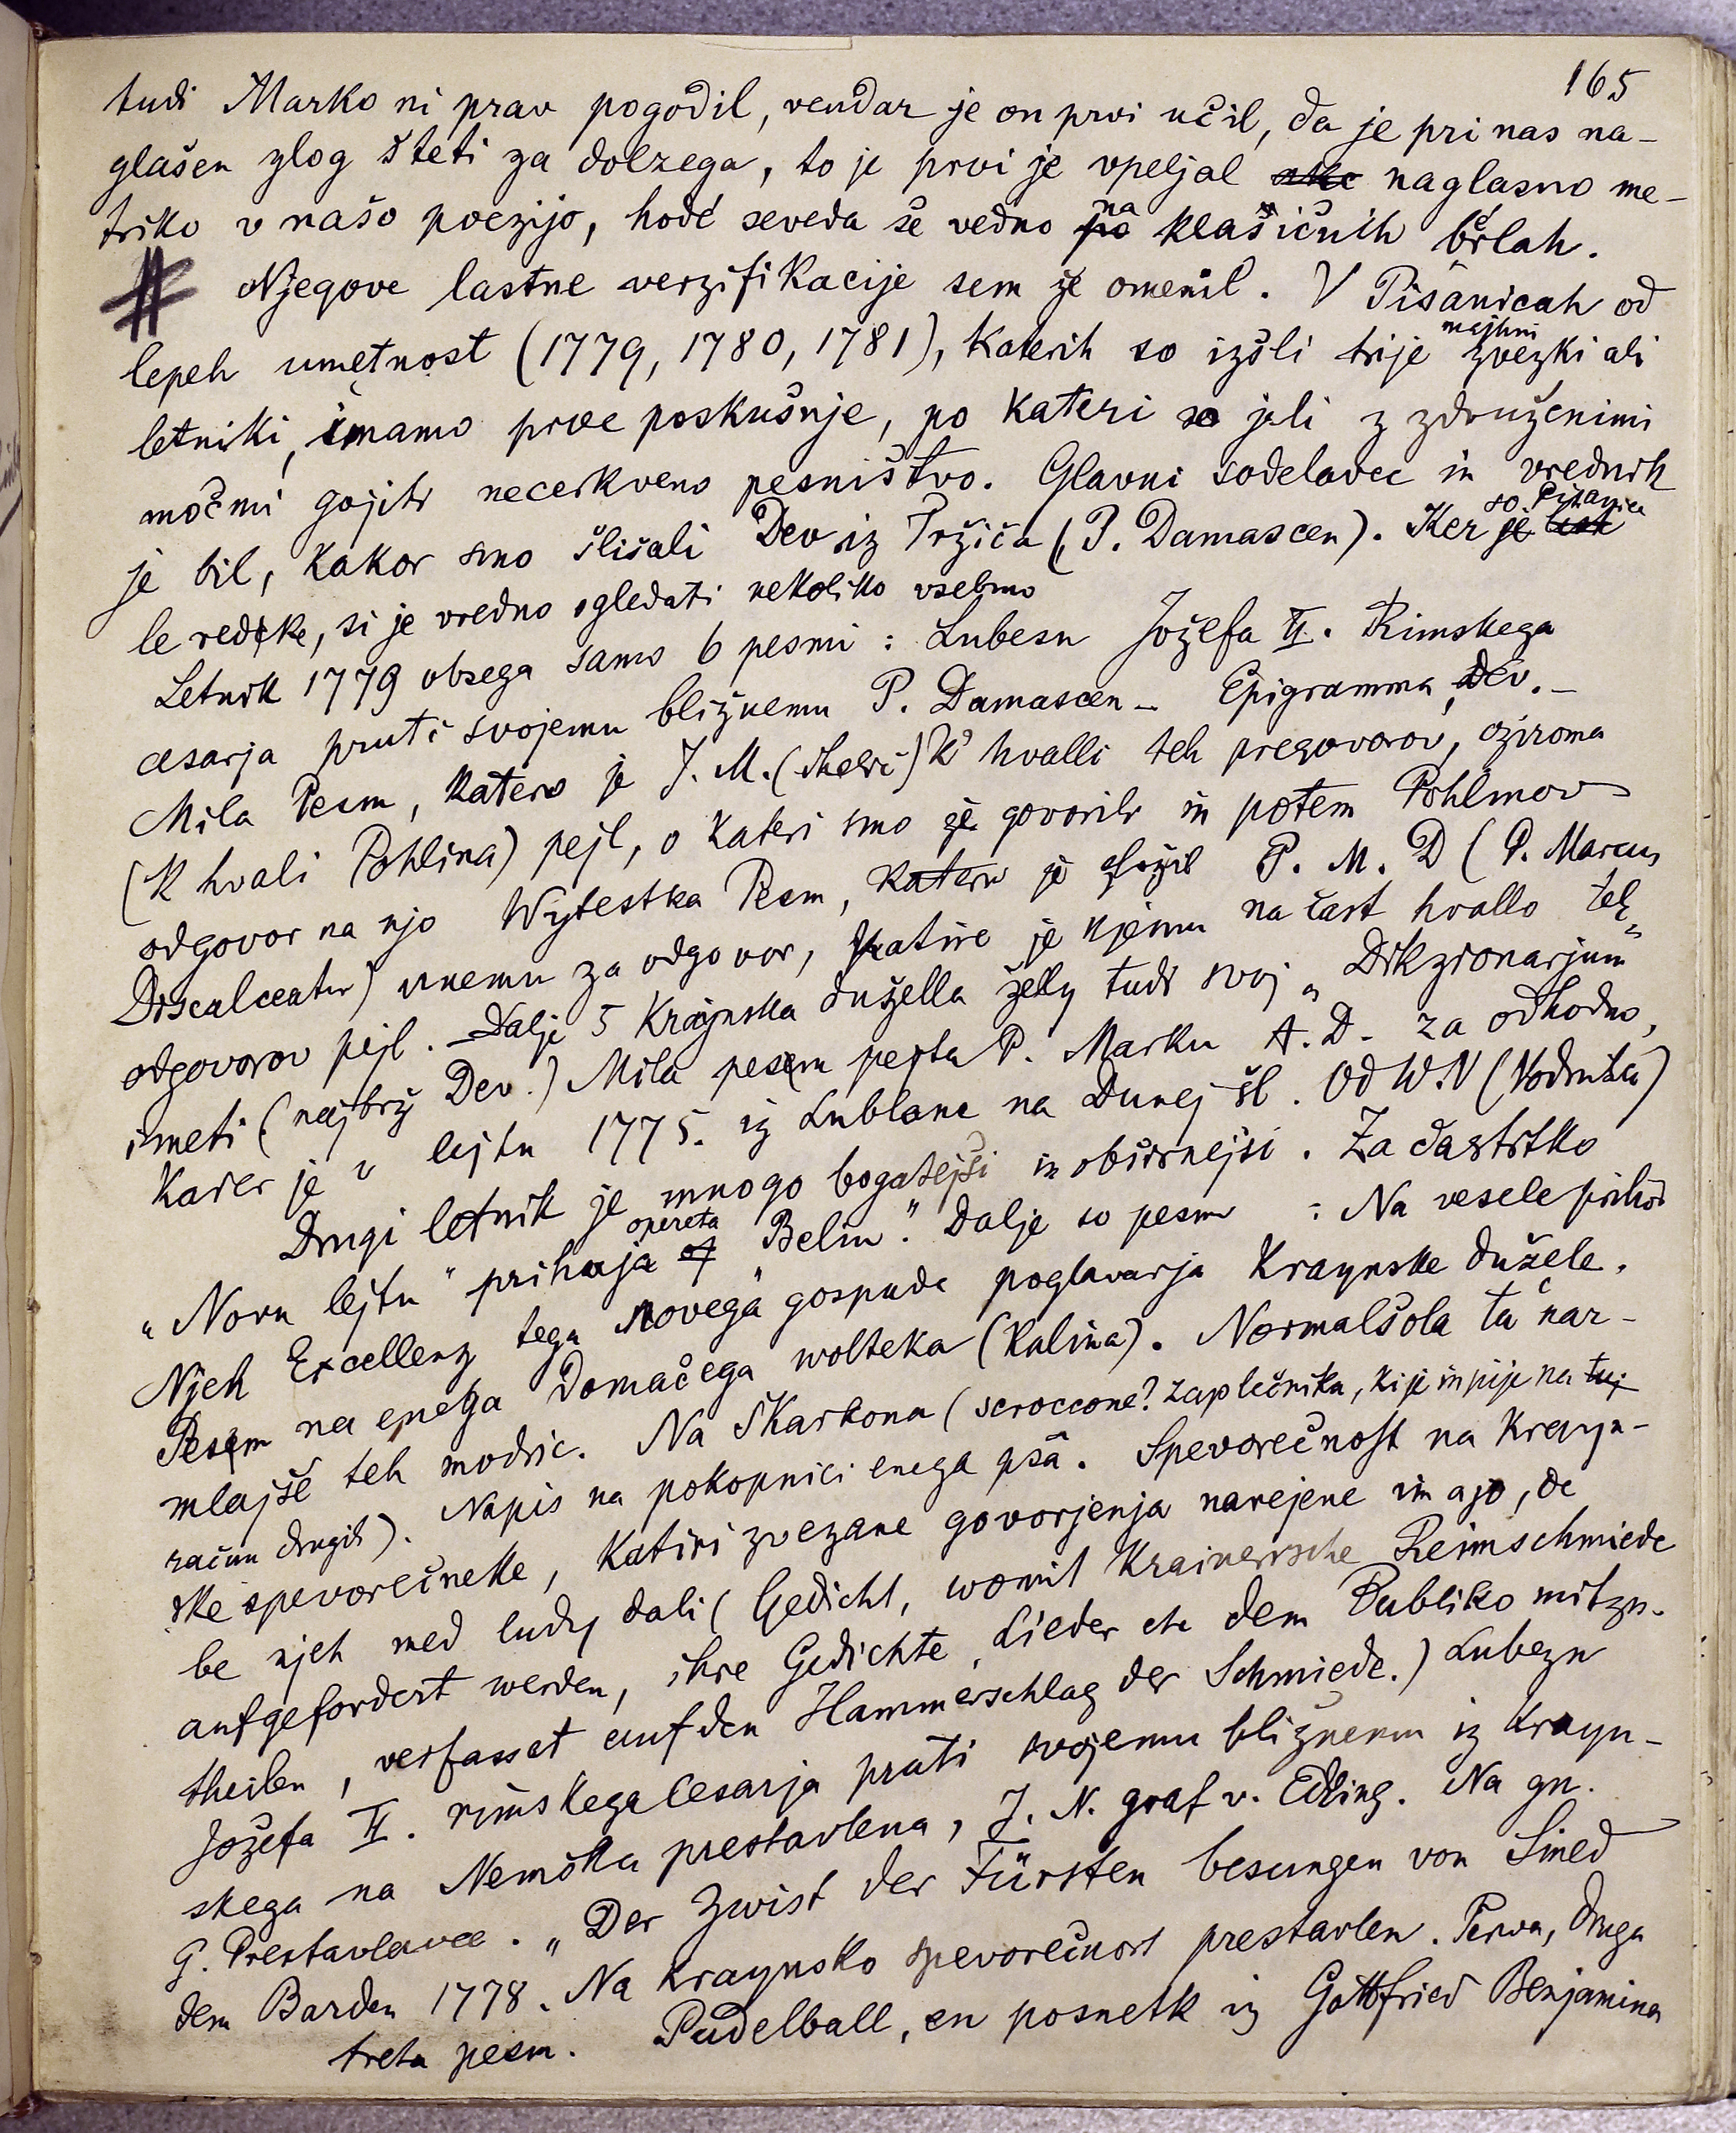 165
tudi Marko ni prav pogodil, vendar je on prvi učil, da je pri nas na-
glašen zlog šteti za dolzega, to je prvi je vpeljal naglasno me-
triko v našo poezijo, hodé seveda še vedno na klasičnih brlah.
Njegove lastne verzifikacije sem že omenil. V Pisanicah od
lepeh umetnost (1779, 1780, 1781), katerih so izšli trije majhni zvezki ali
letniki, imamo prve poskušnje, po kateri so jeli z združenimi
močmi gojiti necerkveno pesništvo. Glavni sodelavec in vrednik
je bil, kakor smo slišali Dev iz Tržiča (P. Damascen). Ker so Pisanice
le redke, si je vredno ogledati nekoliko vsebino
Letnik 1779 obsega samo 6 pesmi: Lubesn Jožefa II. Rimskega
cesarja pruti svojemu bližnemu P. Damascen – Epigramma, Dev. –
Mila Pesm, katero je J. M. K' hvalli teh pregovorov, oziroma
(K hvali Pohlina) pejl, o kateri smo že govorili in potem Pohlinov
odgovor na njo Wytestka Pesm, katero je složil P. M. D (P. Marcus
Discalceatus) unemu za odgovor, katire je njemu na čast hvallo teh
odgovorov pejl. – Dalje 5 Kraynska dužella želly tudi svoj „Dikzionarjum"
imeti (najbrž Dev.) Mila pesem pejta P. Marku A. D. za odhodno,
kader je v lejtu 1775. iz Lublane na Dunej šl. Od W. V (Vodnika)
Drugi letnik je mnogo bogatejši in obširnejši. Za častitko
„Novu lejtu" prihaja opereta „Belin". Dalje so pesmi: Na vesele prihod
Njeh Excellenz tega novega gospuda poglavarja Kraynske dužele.
Pesem na enega domačega wolteka (Kalina). Normalšola ta nar-
mlajše teh modric. Na Skarkona (scroccone? zaplečnika, ki je in pije na
račun drugih). Napis na pokopnici enega psa. Spevorečnost na Krayn-
ske spevorečneke, katiri zvezane govorjenja narejene imajo, de
be njeh med ludy dali (Gedicht, womit Krainerische Reimschmiede
aufgefordert werden, ihre Gedichte, Lieder etc dem Publiko mitzu-
theilen, verfasset auf den Hammerschlag der Schmiede.) Lubezn
Jožefa II. rimskega Cesarja pruti svojemu bližnemu iz Krayn-
skega na Nemško prestavlena, J. N. graf v. Edling. Na gn.
G. Prestavlavce. „Der Zwist der Fürsten besungen von Sined
dem Barden 1778. Na kraynsko spevorečnost prestavlen. Perva, druga
treta pesm. Pudelball, en posnetk iz Gottfried Benjamina